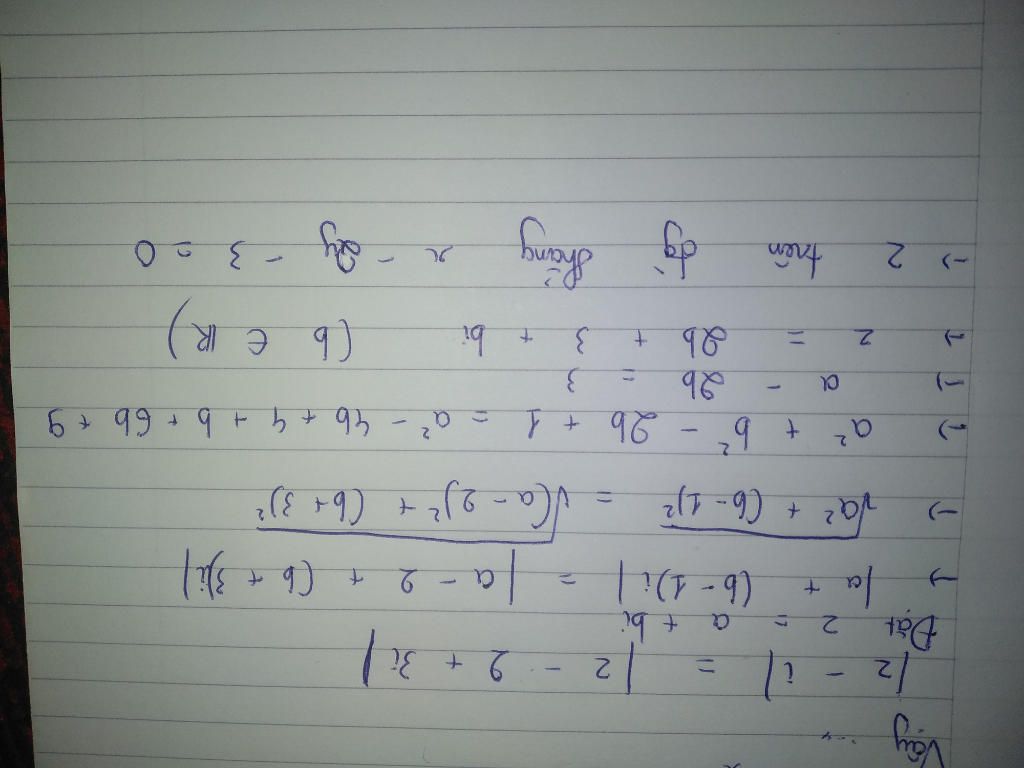 Vậy ...
|z - i| = |z - 2 + 3i|
Đặt z = a + bi
→ |a + (b-1)i| = |a - 2 + (b + 3)i|
→ √(a² + (b-1)²) = √((a-2)² + (b+3)²)
→ a² + b² - 2b + 1 = a² - 4b + 4 + b + 6b + 9
→ a - 2b = 3
→ z = 2b + 3 + bi (b ∈ ℝ)
→ z trên đg̀ thẳng x - 2y - 3 = 0